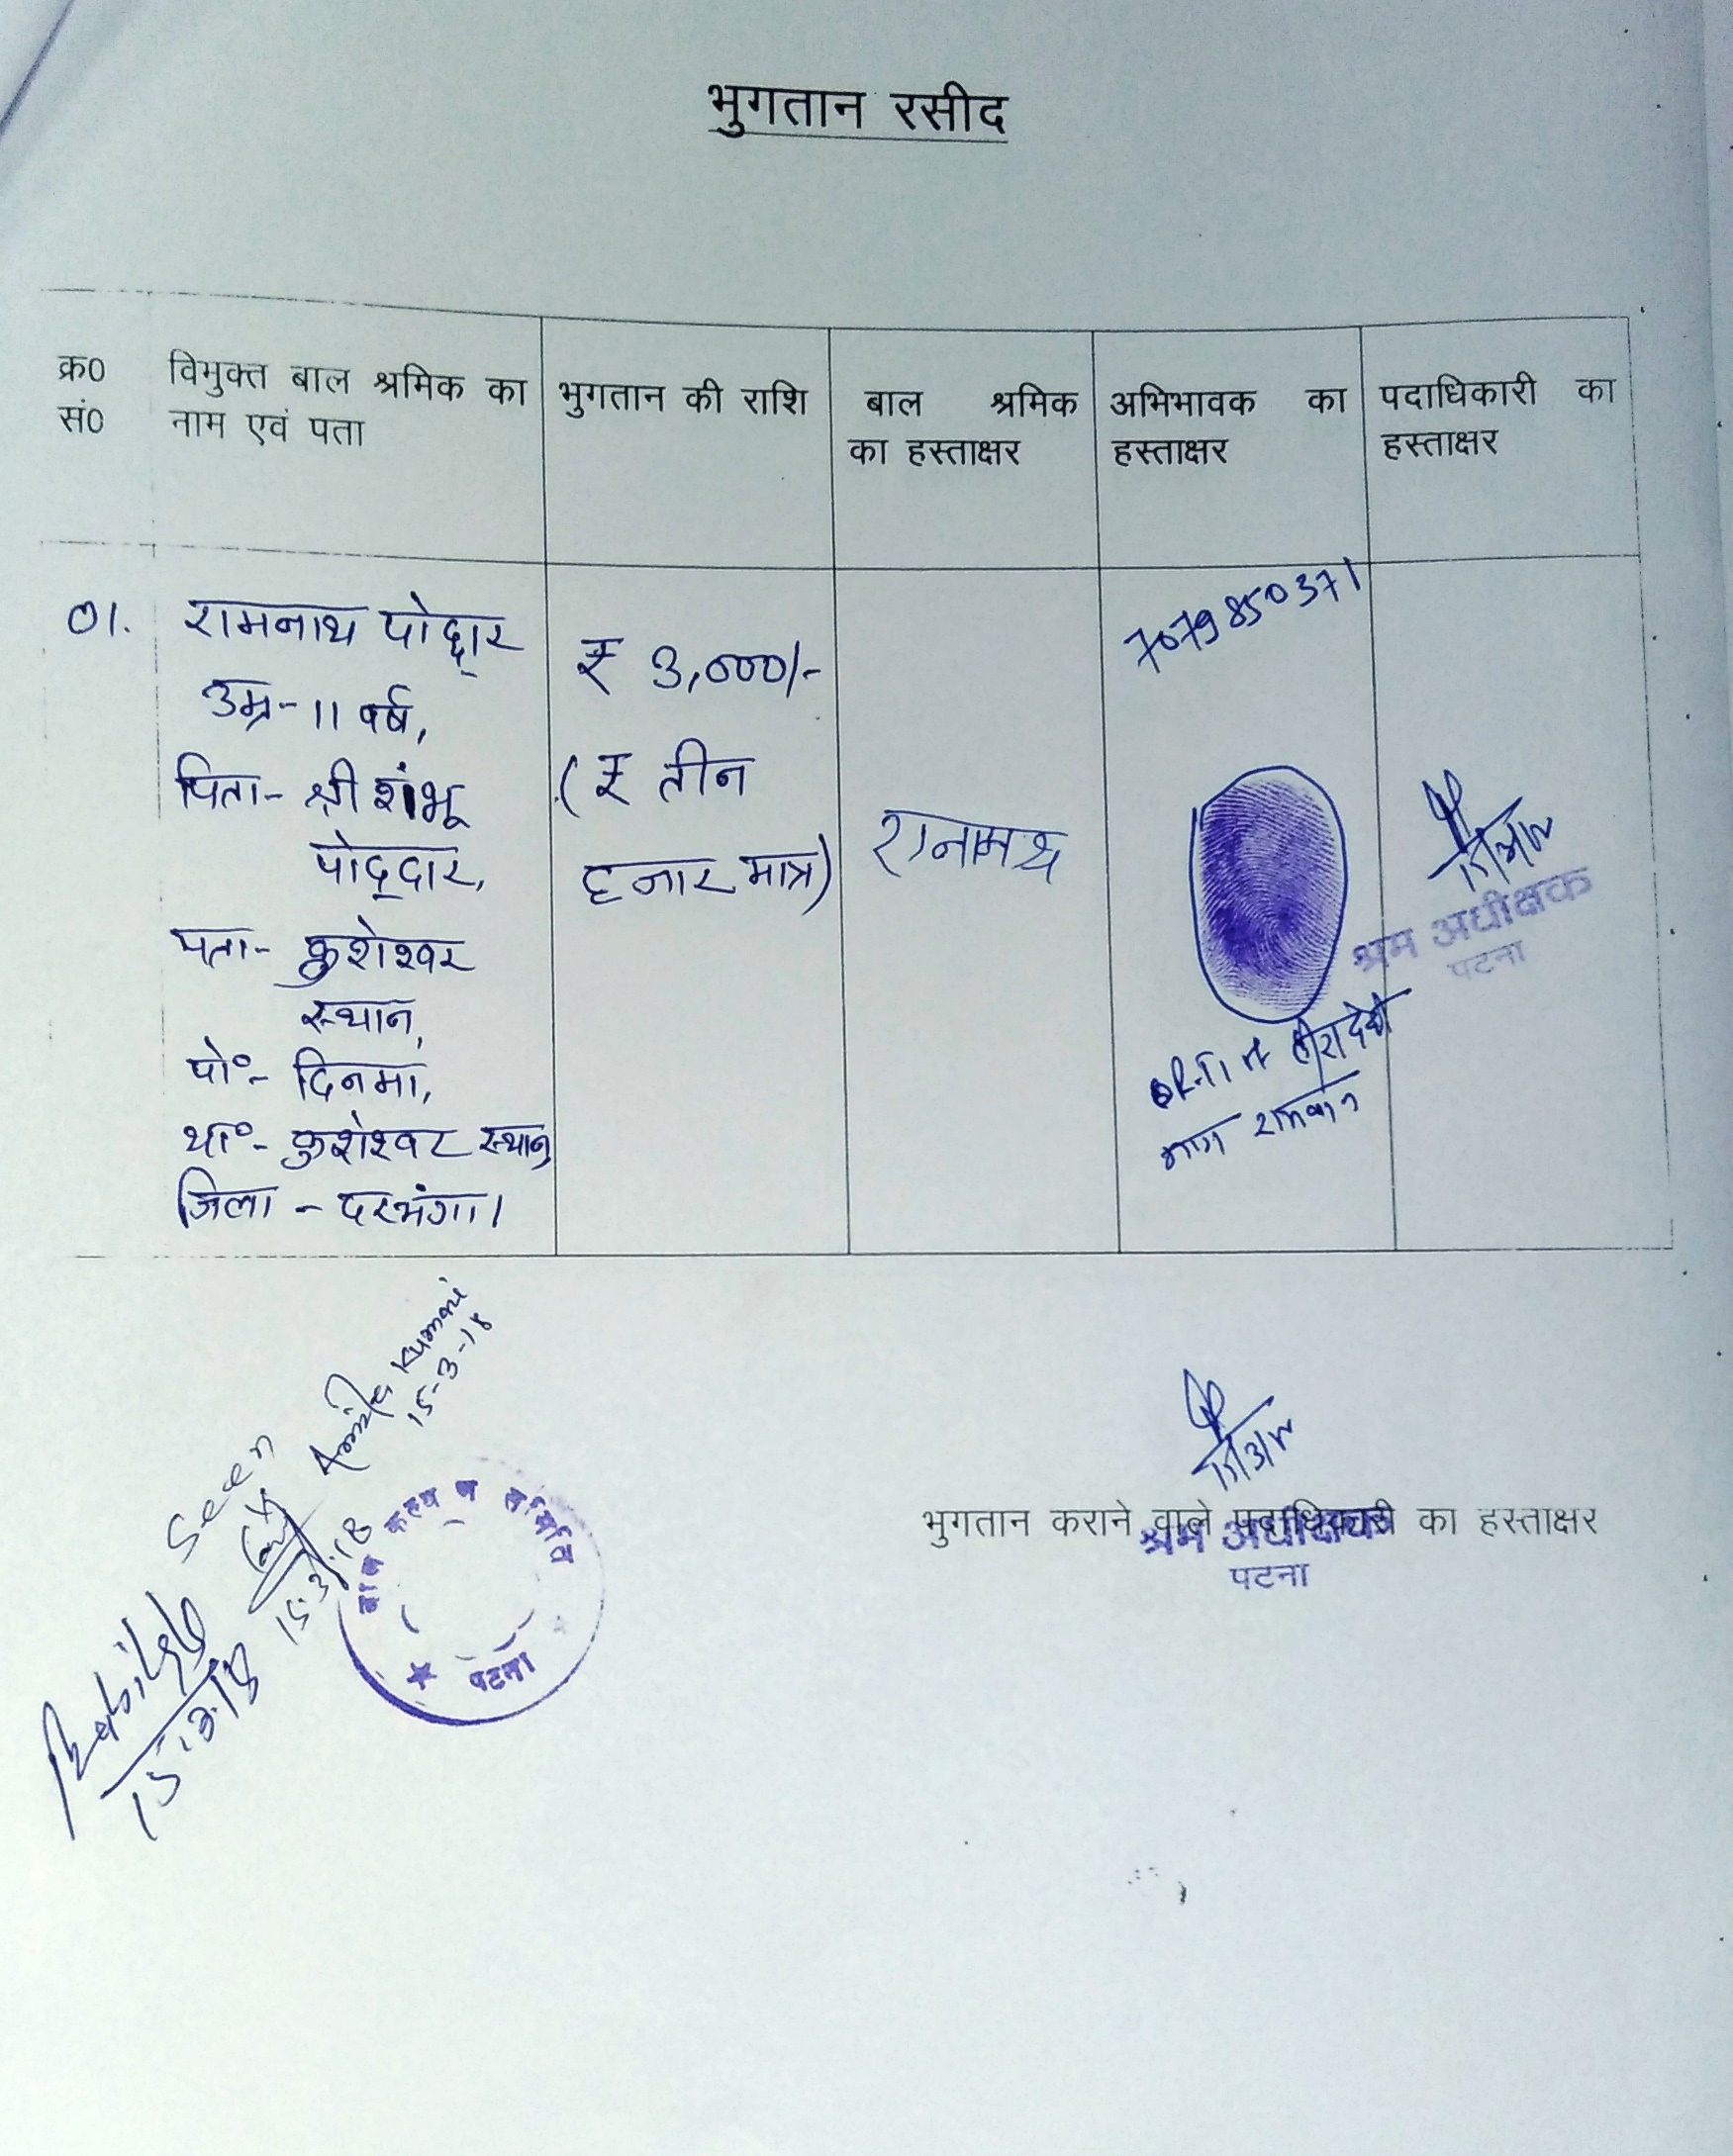 भुगतान रसीद
क्र0 सं0
विभुक्त बाल श्रमिक का
नाम एवं पता
भुगतान की राशि
बाल श्रमिक
का हस्ताक्षर
अभिभावक का
हस्ताक्षर
पदाधिकारी का
हस्ताक्षर
01.
रामनाथ पोद्दार
उम्र-11 वर्ष,
पिता- श्री शंभू
पोद्दार,
पता- कुशेश्वर
स्थान,
पो०- दिनमा,
था०- कुशेश्वर स्थान,
जिला - दरभंगा।
₹ 3,000/-
(₹ तीन
हजार मात्र)
रानामथ
7079850371
हीरा देवी
श्रम अधीक्षक
पटना
Seen
Kumari
15-3-18
15.3.18
15.3.18
बाल कल्याण समिति
पटना
भुगतान कराने वाले पदाधिकारी का हस्ताक्षर
श्रम अधीक्षक
पटना